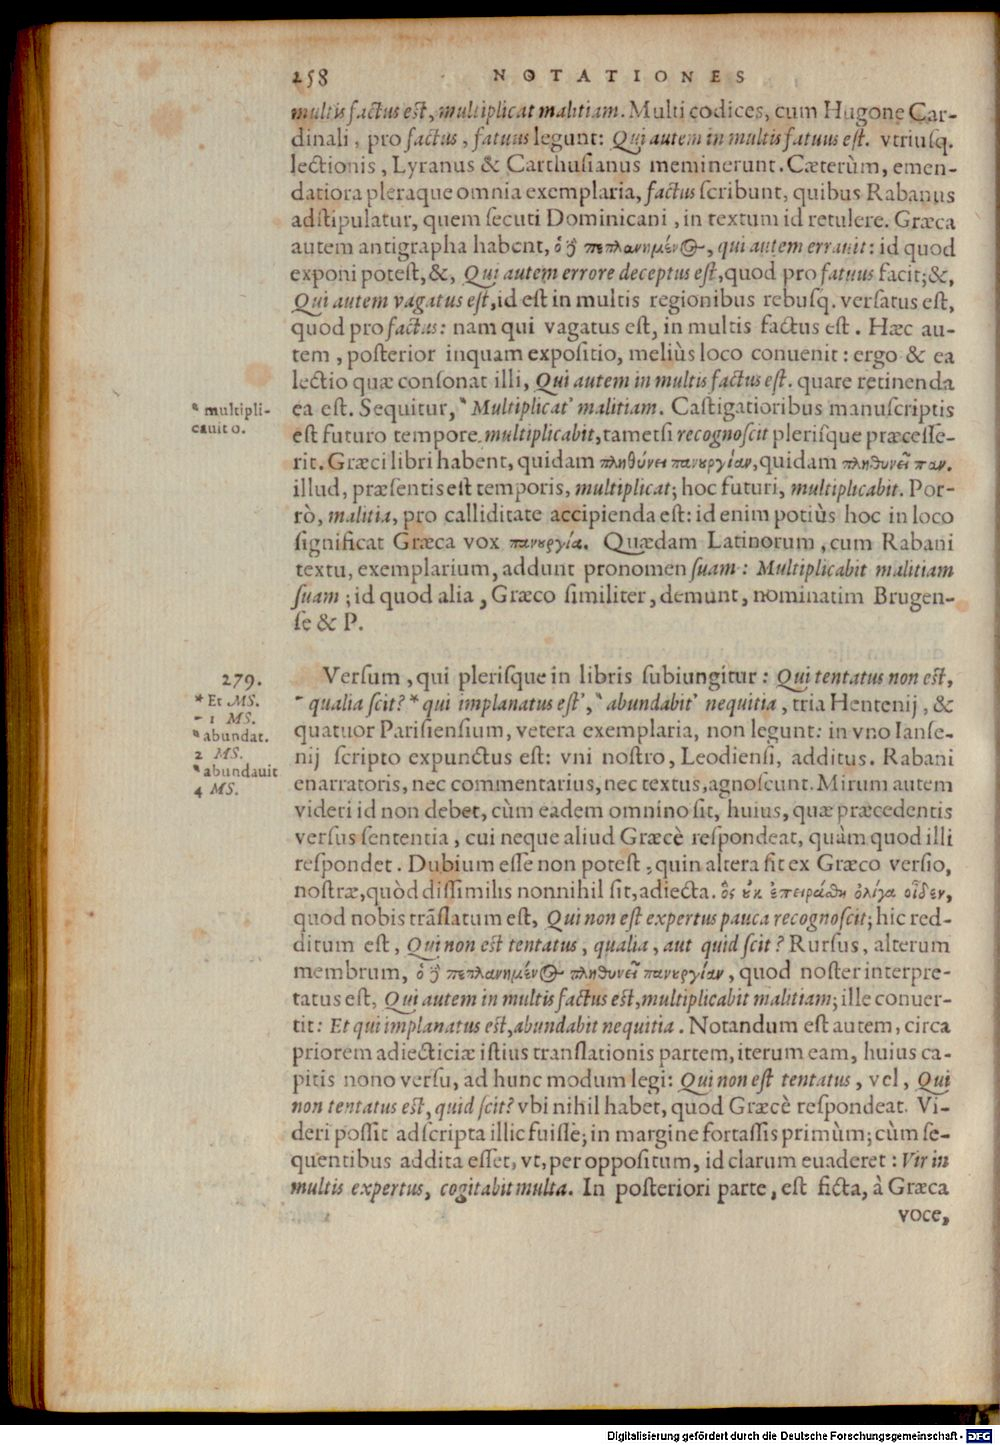 258 NOTATIONES
multis factus est, multiplicat malitiam. Multi codices, cum Hugone Car-
dinali, pro factus, fatuus legunt: Qui autem in multis fatuus est. vtriusq.
lectionis, Lyranus & Carthusianus meminerunt. Cæterùm, emen-
datiora pleraque omnia exemplaria, factus scribunt, quibus Rabanus
adstipulatur, quem secuti Dominicani, in textum id retulere. Græca
autem antigrapha habent, ὁ δὲ πεπλανημένος, qui autem errauit: id quod
exponi potest, &, Qui autem errore deceptus est, quod pro fatuus facit; &,
Qui autem vagatus est, id est in multis regionibus rebusq. versatus est,
quod pro factus: nam qui vagatus est, in multis factus est. Hæc au-
tem, posterior inquam expositio, meliùs loco conuenit: ergo & ea
lectio quæ consonat illi, Qui autem in multis factus est. quare retinenda
ea est. Sequitur, ‛ Multiplicat’ malitiam. Castigatioribus manuscriptis
‛ multipli-
cauit 0.
est futuro tempore multiplicabit, tametsi recognoscit plerisque præcesse-
rit. Græci libri habent, quidam πληθύνει πανουργίαν, quidam πληθυνεῖ παν.
illud, præsentis est temporis, multiplicat; hoc futuri, multiplicabit. Por-
rò, malitia, pro calliditate accipienda est: id enim potiùs hoc in loco
significat Græca vox πανουργία. Quædam Latinorum, cum Rabani
textu, exemplarium, addunt pronomen suam: Multiplicabit malitiam
suam; id quod alia, Græco similiter, demunt, nominatim Brugen-
se & P.
279.
* Et MS.
- 1 MS.
‛ abundat.
2 MS.
‛ abundauit
4 MS.
Versum, qui plerisque in libris subiungitur: Qui tentatus non est,
- qualia scit? * qui implanatus est’, ‛ abundabit’ nequitia, tria Hentenij, &
quatuor Parisiensium, vetera exemplaria, non legunt: in vno Ianse-
nij scripto expunctus est: vni nostro, Leodiensi, additus. Rabani
enarratoris, nec commentarius, nec textus, agnoscunt. Mirum autem
videri id non debet, cùm eadem omnino sit, huius, quæ præcedentis
versus sententia, cui neque aliud Græcè respondeat, quàm quod illi
respondet. Dubium esse non potest, quin altera sit ex Græco versio,
nostræ, quòd dissimilis nonnihil sit, adiecta. ὃς οὐκ ἐπειράθη ὀλίγα οἶδεν,
quod nobis trãslatum est, Qui non est expertus pauca recognoscit; hic red-
ditum est, Qui non est tentatus, qualia, aut quid scit? Rursus, alterum
membrum, ὁ δὲ πεπλανημένος πληθυνεῖ πανουργίαν, quod noster interpre-
tatus est, Qui autem in multis factus est, multiplicabit malitiam; ille conuer-
tit: Et qui implanatus est, abundabit nequitia. Notandum est autem, circa
priorem adiecticiæ istius translationis partem, iterum eam, huius ca-
pitis nono versu, ad hunc modum legi: Qui non est tentatus, vel, Qui
non tentatus est, quid scit? vbi nihil habet, quod Græcè respondeat. Vi-
deri possit adscripta illic fuisse; in margine fortassis primùm; cùm se-
quentibus addita esset, vt, per oppositum, id clarum euaderet: Vir in
multis expertus, cogitabit multa. In posteriori parte, est ficta, à Græca
voce,
Digitalisierung gefördert durch die Deutsche Forschungsgemeinschaft - DFG